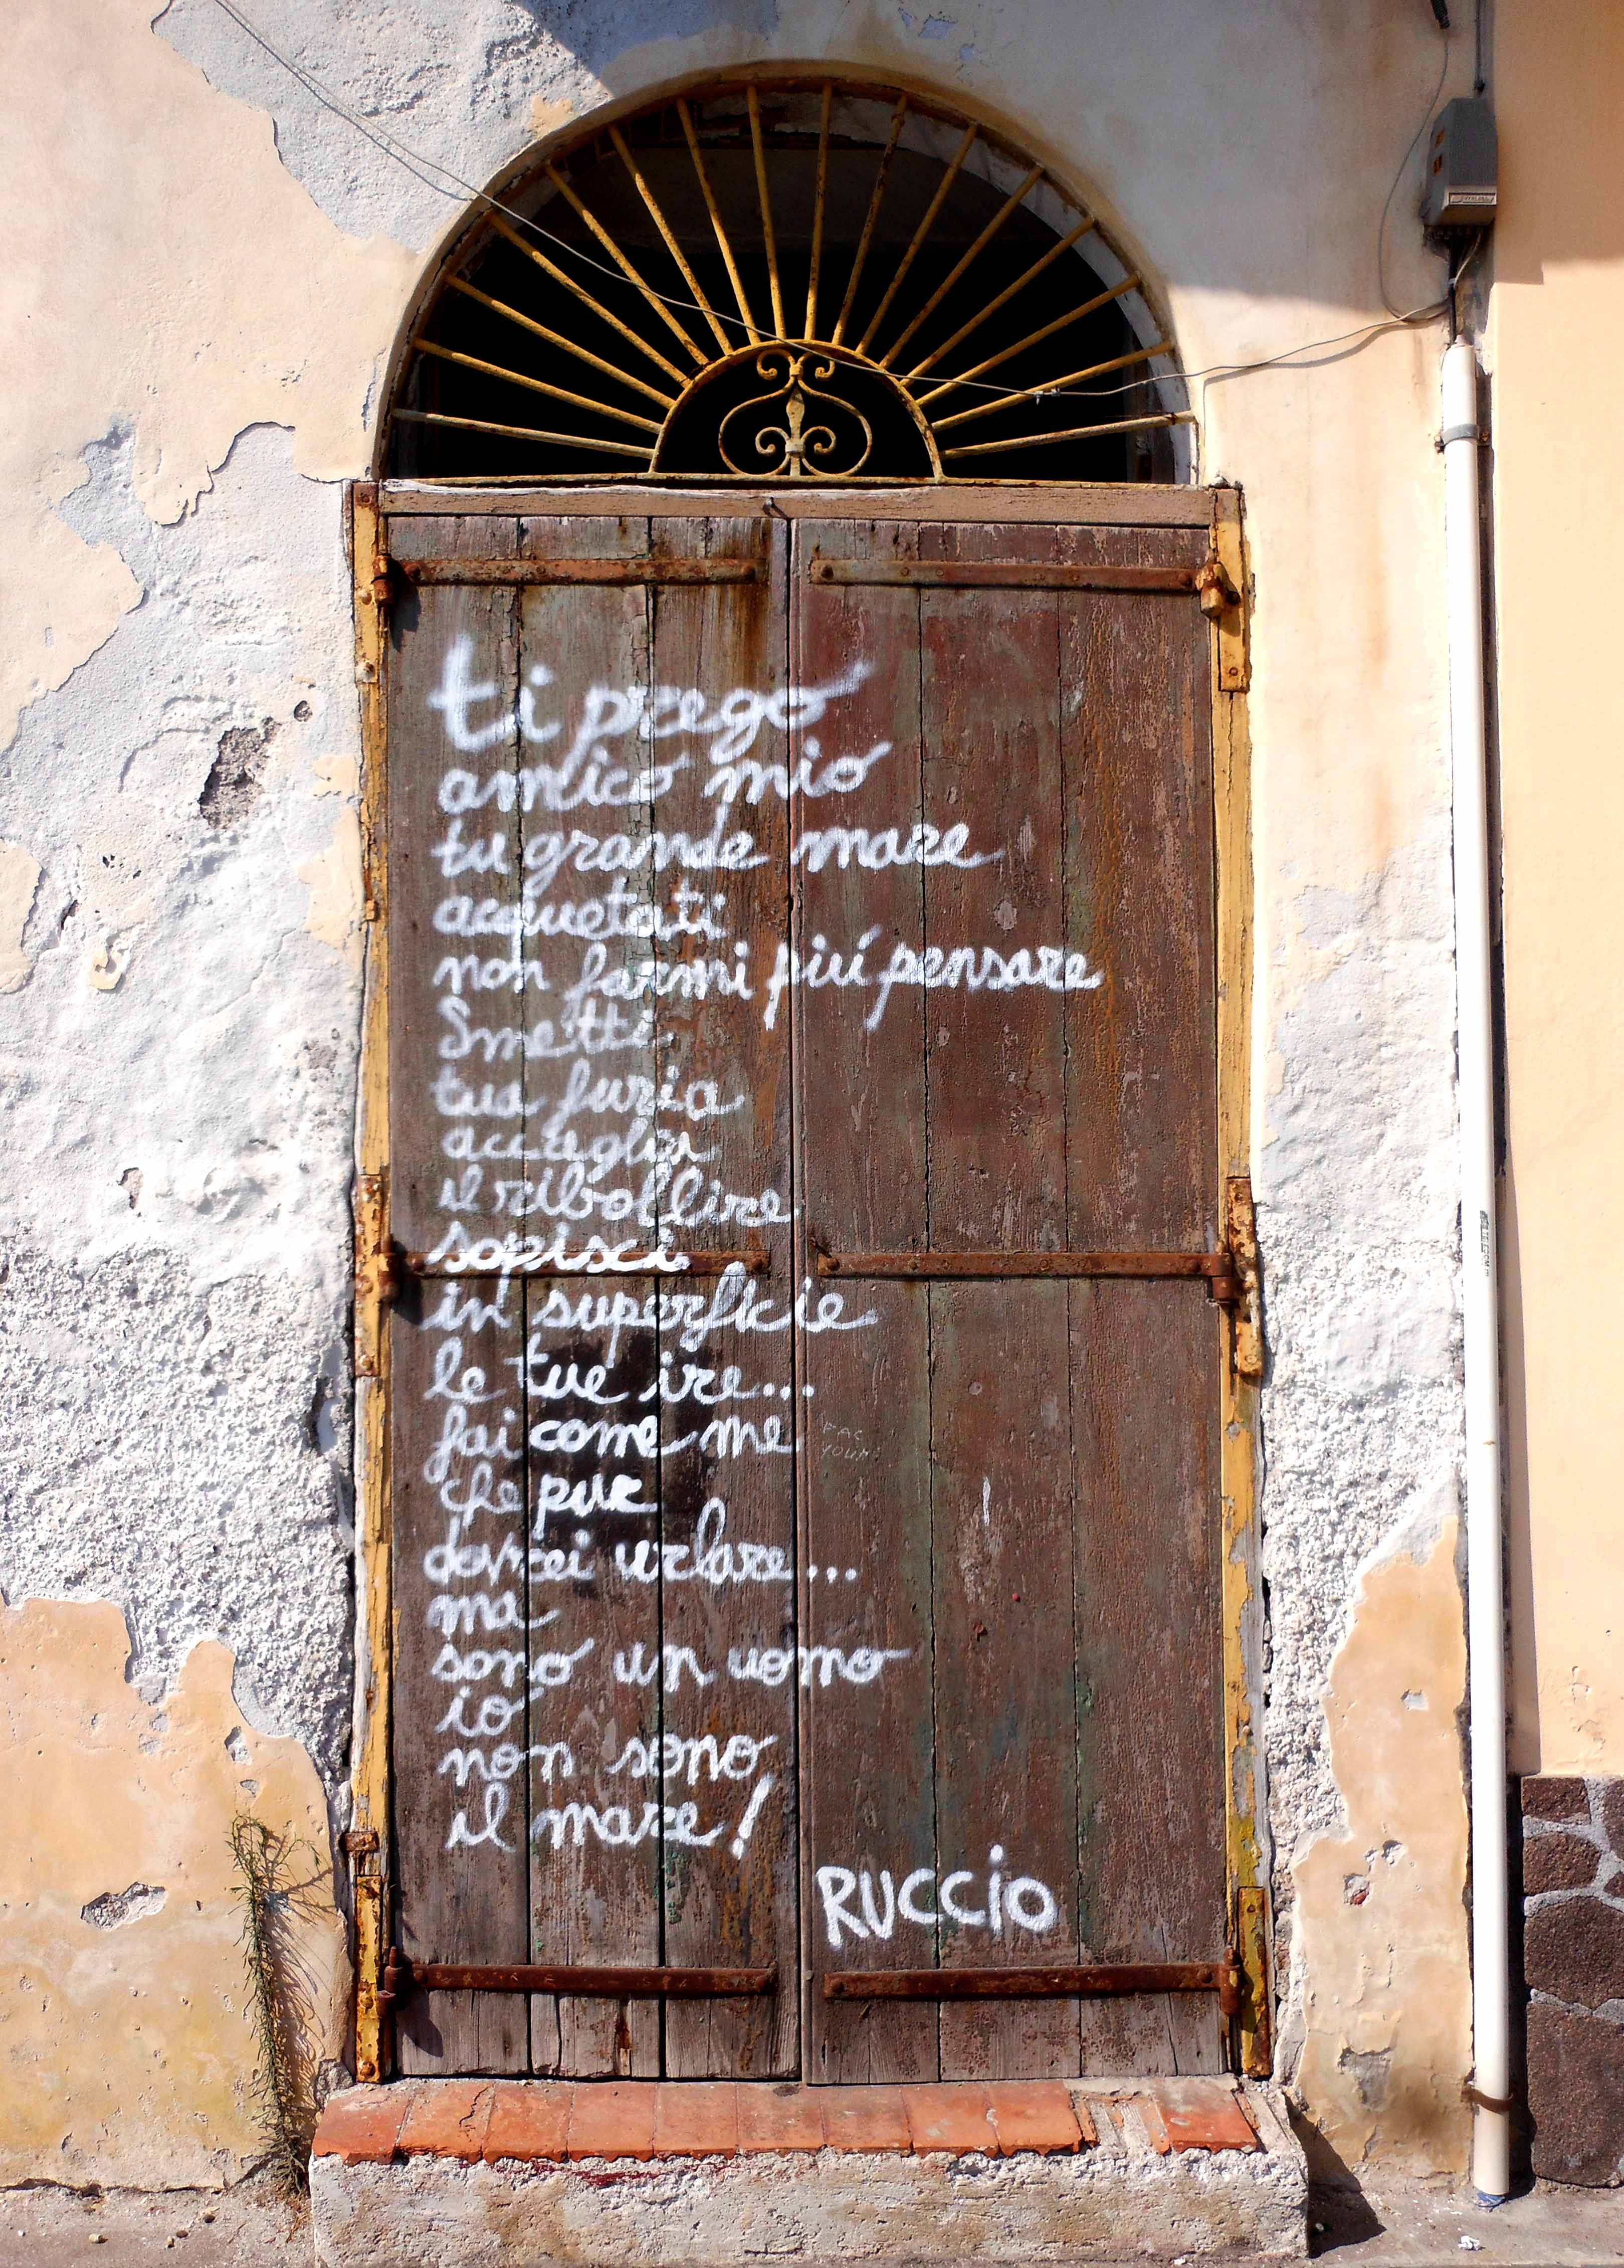 ti prego
amico mio
tu grande mare
acquetati
non farmi piú pensare
Smetti
tua furia
accogli
il ribollire
sopisci
in superficie
le tue ire...
fai come me
che pur
dovrei urlare...
ma
sono un uomo
io
non sono
il mare!
RUCCiO
FAC